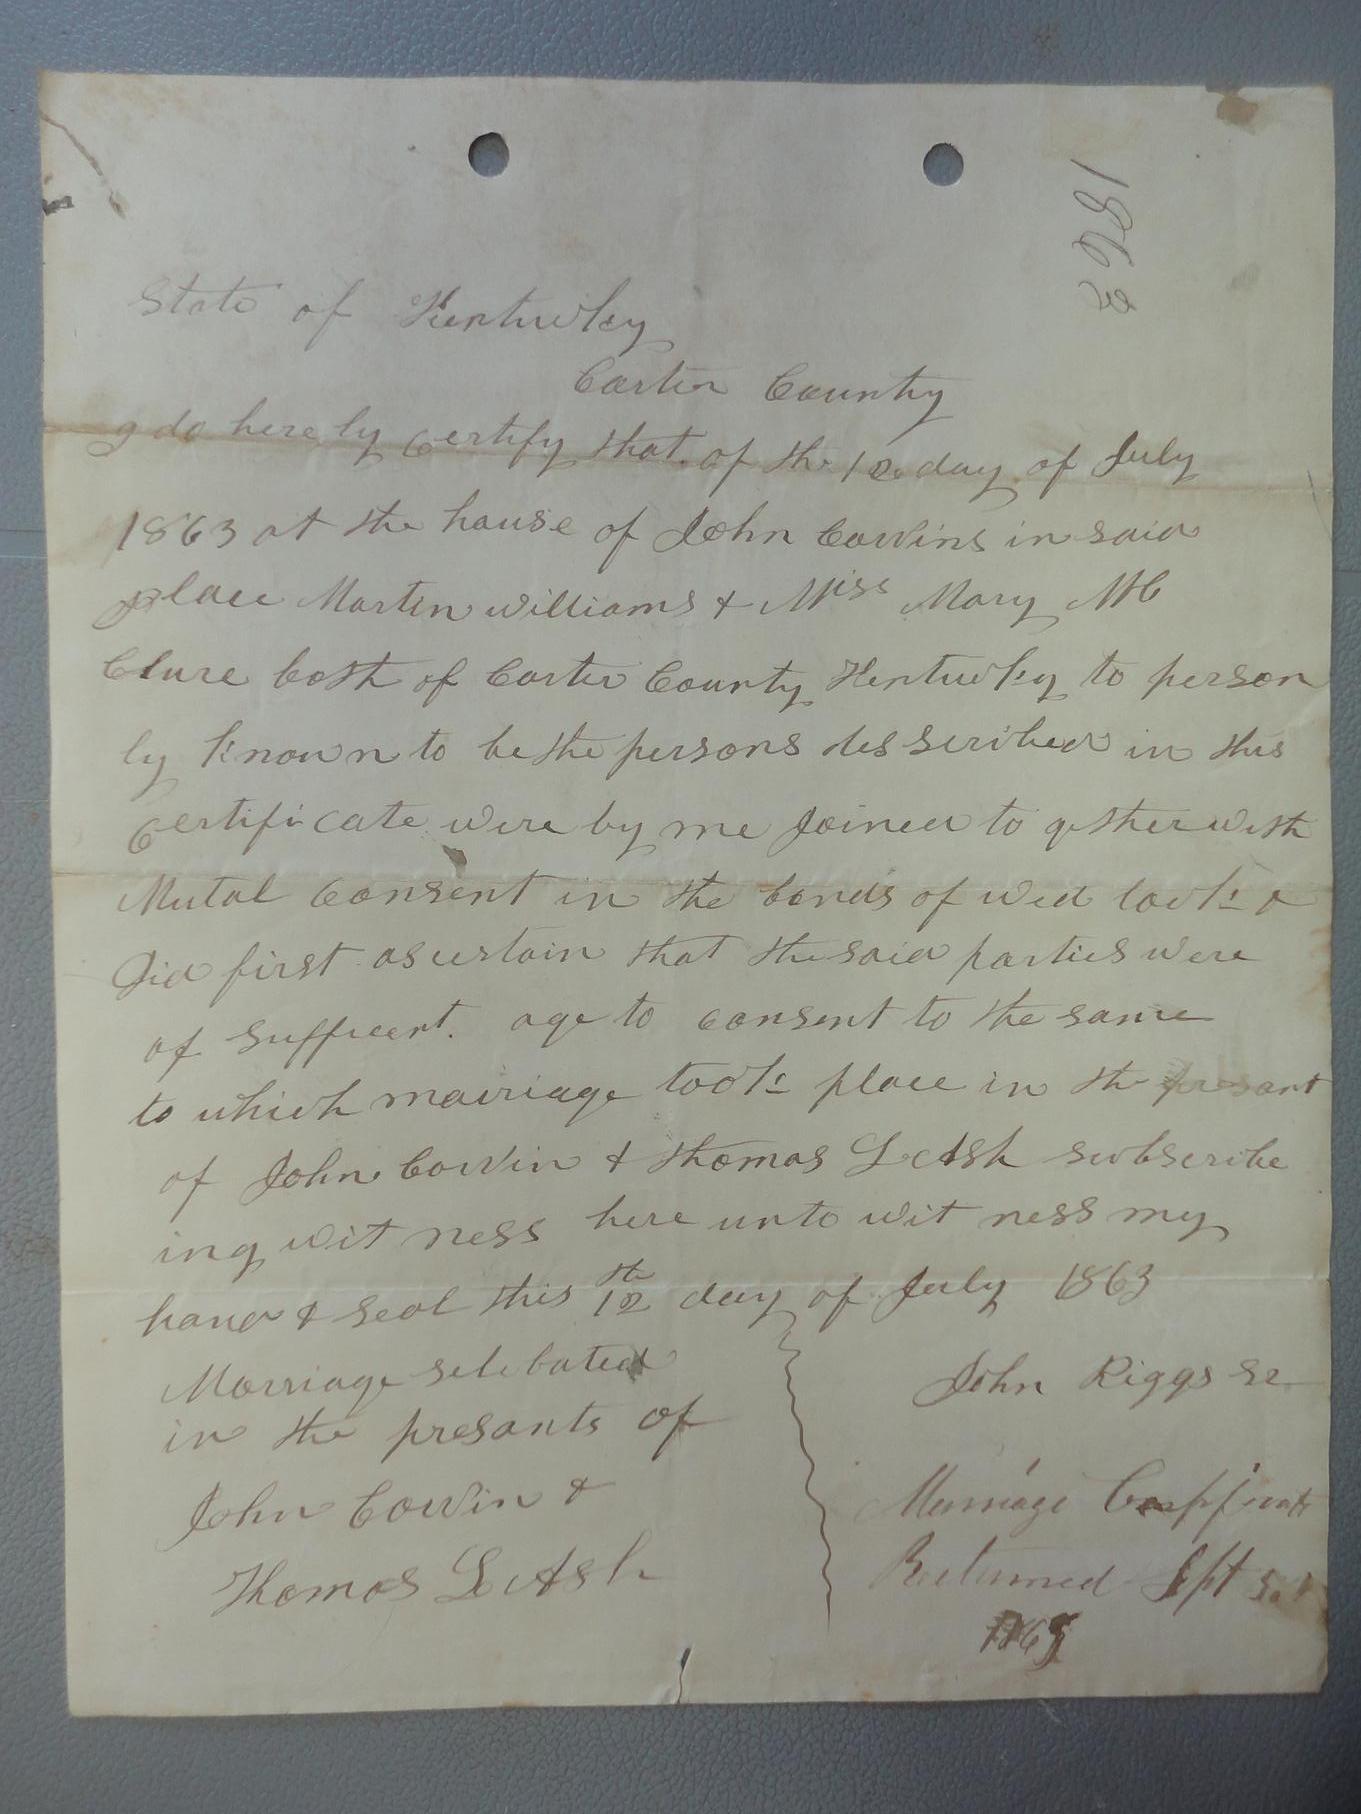 1863
State of Kentucky
Carter County
I do here by Certify that of the 12 day of July
1863 at the hause of John Cowins in said
place Marten Williams & Miss Mary Mc
Clure both of Carter County Kentucky to person
ly known to be the persons desscribed in this
Certificate were by me Joined to gether with
Mutal Consent in the bonds of wed lock &
Did first ascertain that the said parties were
of sufficent. age to consent to the same
to which mairiage took place in the presant
of John Cowin & Thomas L Ash subscribe
ing wit ness here unto wit ness my
hand & seal this 12th day of July 1863
Marriage selebated
in the presants of
John Cowin &
Thomas L Ash
John Riggs
Marriage
Returned Sept